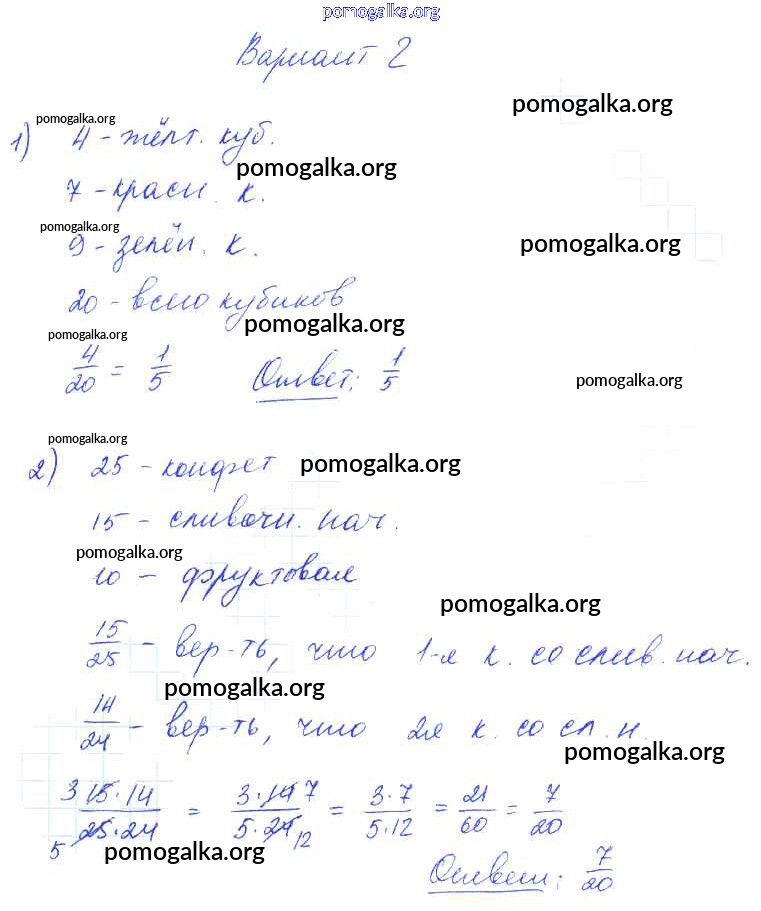 pomogalka.org
Вариант 2
pomogalka.org
pomogalka.org
1) 4 - жёлт. куб.
pomogalka.org
7 - красн. к.
pomogalka.org
9 - зелён. к.
pomogalka.org
20 - всего кубиков
pomogalka.org
pomogalka.org
4/20 = 1/5 Ответ: 1/5
pomogalka.org
pomogalka.org
2) 25 - конфет
pomogalka.org
15 - сливочн. нач.
pomogalka.org
10 - фруктовая
pomogalka.org
15/25 - вер-ть, что 1-я к. со слив. нач.
pomogalka.org
14/24 - вер-ть, что 2я к. со сл. н.
pomogalka.org
3 15·14 / 5 25·24 = 3·14 7 / 5·24 12 = 3·7 / 5·12 = 21/60 = 7/20
pomogalka.org
Ответ: 7/20